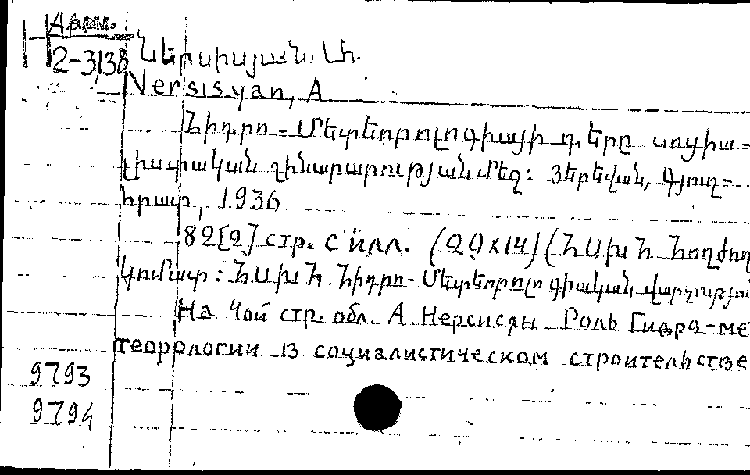 Арм.
2-3138
Ներսիսյան. Ա.
Nersisyan, A
Հիդրո-Մետեորոլոգիայի դերը սոցիա-
լիստական շինարարության մեջ: Յերեվան, Գյուղ-
հրատ, 1936
82[2] стр. с илл. (20×14) (ՀԱԽՀ Հողժող
կոմատ: ՀԱԽՀ Հիդրո-Մետեորոլոգիական վարչություն
На 4ой стр. обл. А Нерсисян Роль Гидро-ме
теорологии в социалистическом строительстве
9793
9794